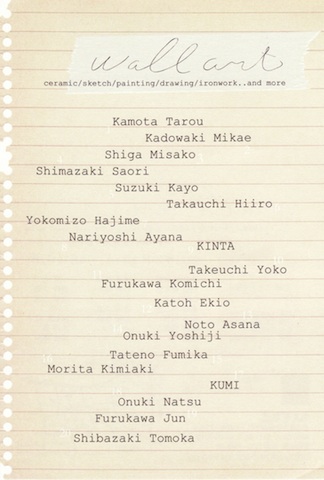 wall art
ceramic/sketch/painting/drawing/ironwork..and more
Kamota Tarou
Kadowaki Mikae
Shiga Misako
Shimazaki Saori
Suzuki Kayo
Takauchi Hiiro
Yokomizo Hajime
Nariyoshi Ayana
KINTA
Takeuchi Yoko
Furukawa Komichi
Katoh Ekio
Noto Asana
Onuki Yoshiji
Tateno Fumika
Morita Kimiaki
KUMI
Onuki Natsu
Furukawa Jun
Shibazaki Tomoka